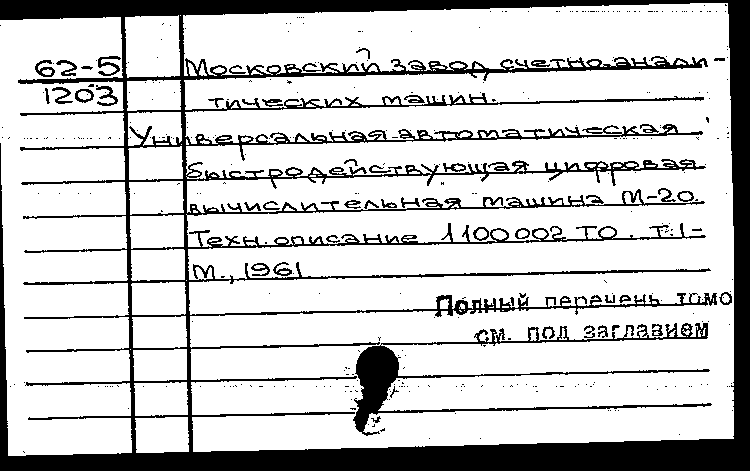 62-5
1203
Московский завод счетно-анали-
тических машин.
Универсальная автоматическая
быстродействующая цифровая
вычислительная машина М-20.
Техн. описание 1100002 ТО. Т.1-
М., 1961.
Полный перечень томо
см. под заглавием